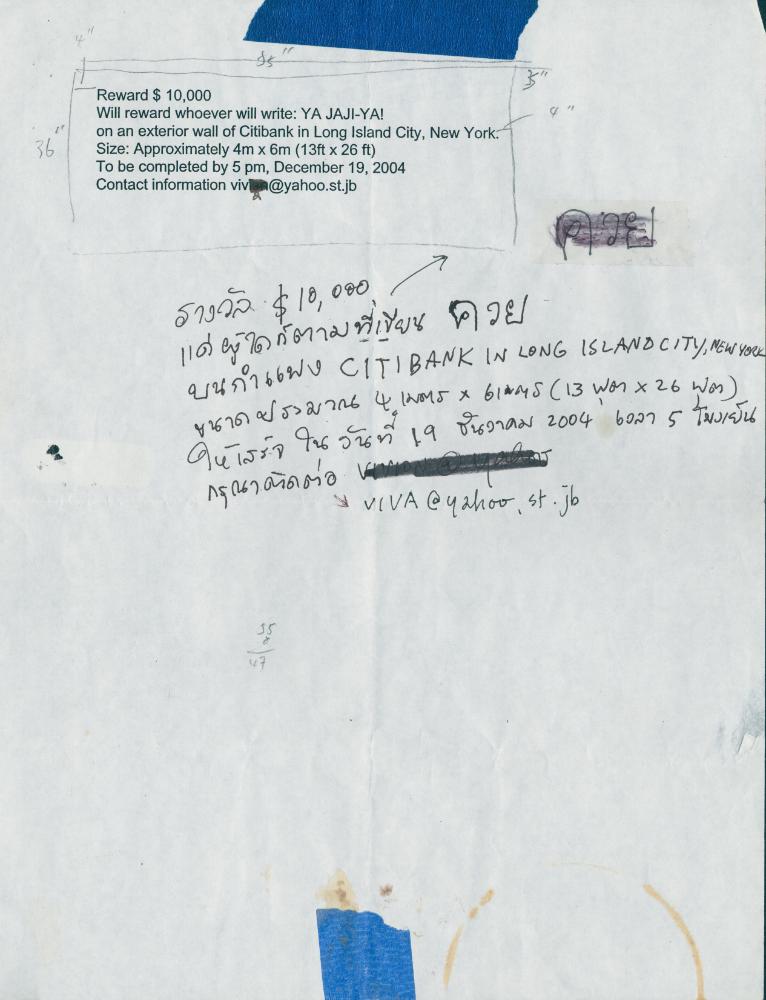 4"
35"
35"
4"
36"
Reward $ 10,000
Will reward whoever will write: YA JAJI-YA!
on an exterior wall of Citibank in Long Island City, New York.
Size: Approximately 4m x 6m (13ft x 26 ft)
To be completed by 5 pm, December 19, 2004
Contact information viv @yahoo.st.jb
ควย
รางวัล $ 10,000
แด่ ผู้ใดก็ตามที่เขียน ควย
บนกำแพง CITIBANK IN LONG ISLAND CITY, NEW YORK
ขนาดประมาณ 4 เมตร x 6 เมตร (13 ฟุต x 26 ฟุต)
ให้เสร็จ ใน วันที่ 19 ธันวาคม 2004 เวลา 5 โมงเย็น
กรุณาติดต่อ
VIVA @yahoo.st.jb
47